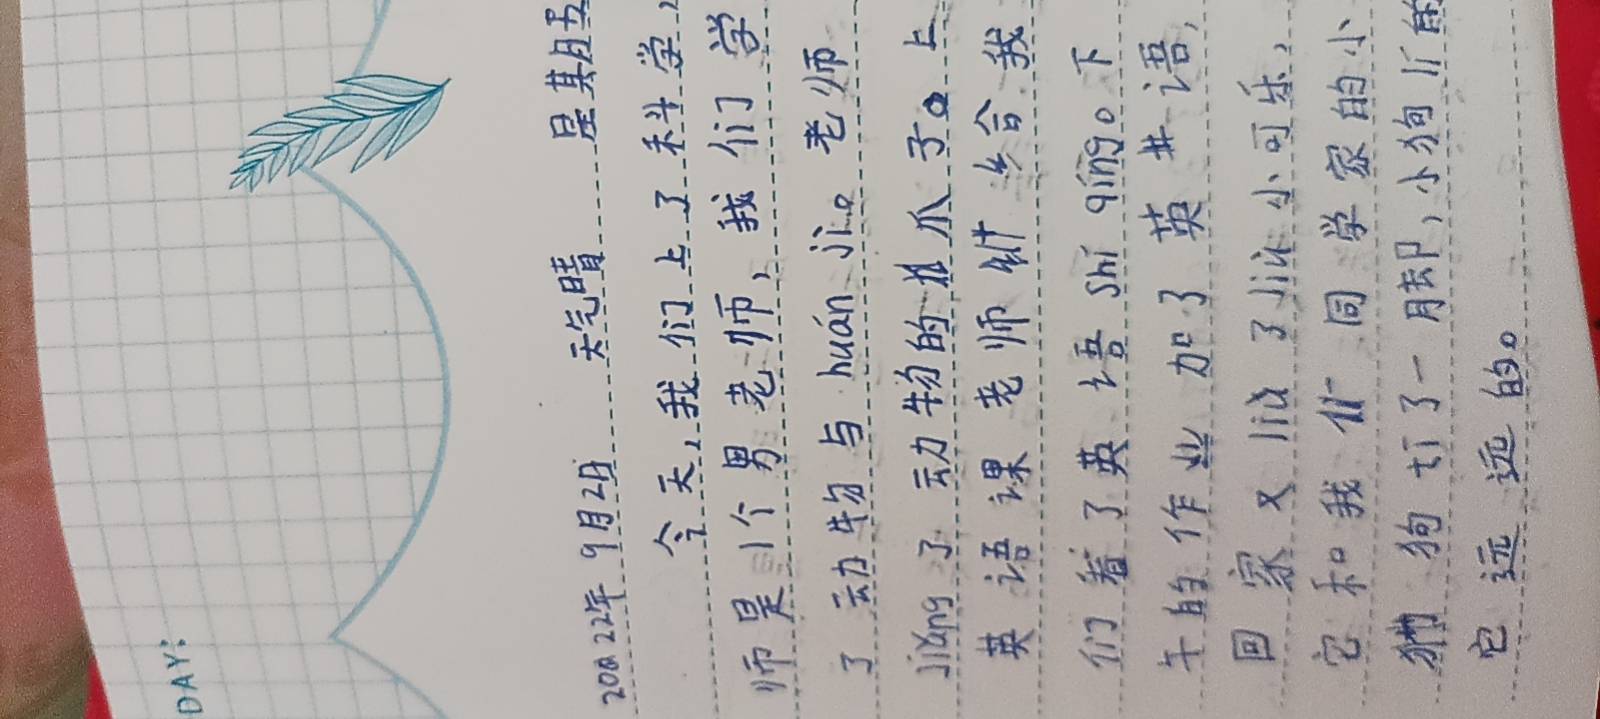 DAY:
2022年 9月2日 天气晴 星其月五
今天,我们上了科学,
师是1个男老师,我们学
了动物与huán ji。老师
jiǎng了动物的爪子。上
英语课老师给我
们看了英语shī qíng。下
午的作业加了英语,
回家又liù了jiù小可乐,
它和我们同学家的小
狗打了一月却,小狗li的
它远远的。